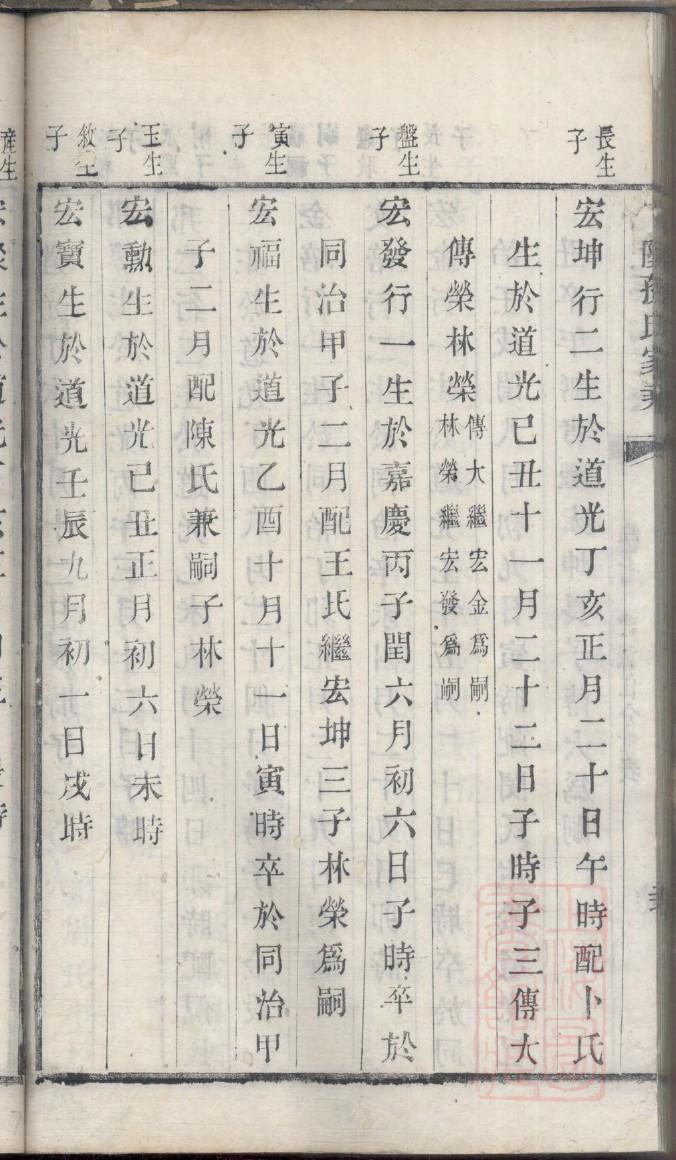 長生子
宏坤行二生於道光丁亥正月二十日午時配卜氏
生於道光己丑十一月二十二日子時子三傳大
傳榮林榮傳大繼宏金爲嗣
林榮繼宏發爲嗣
盤生子
宏發行一生於嘉慶丙子閏六月初六日子時卒於
同治甲子二月配王氏繼宏坤三子林榮爲嗣
寅生子
宏福生於道光乙酉十月十一日寅時卒於同治甲
子二月配陳氏兼嗣子林榮
玉生子
宏勳生於道光己丑正月初六日未時
敘生子
宏寶生於道光壬辰九月初一日戌時